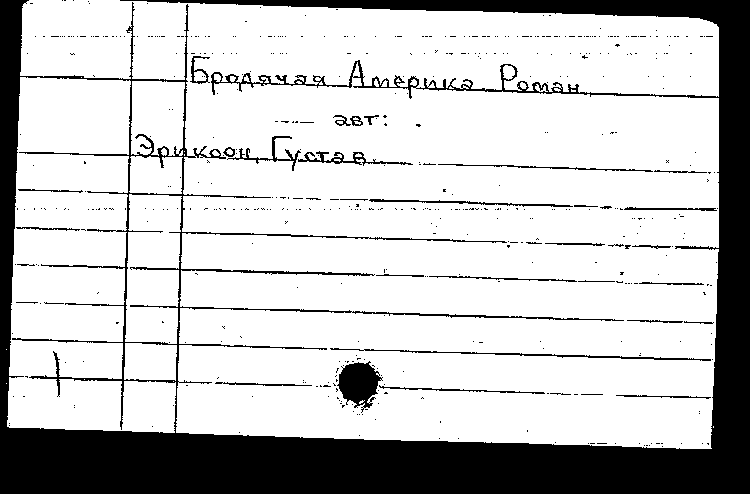 Бродячая Америка. Роман.
— авт:
Эриксон, Густав.